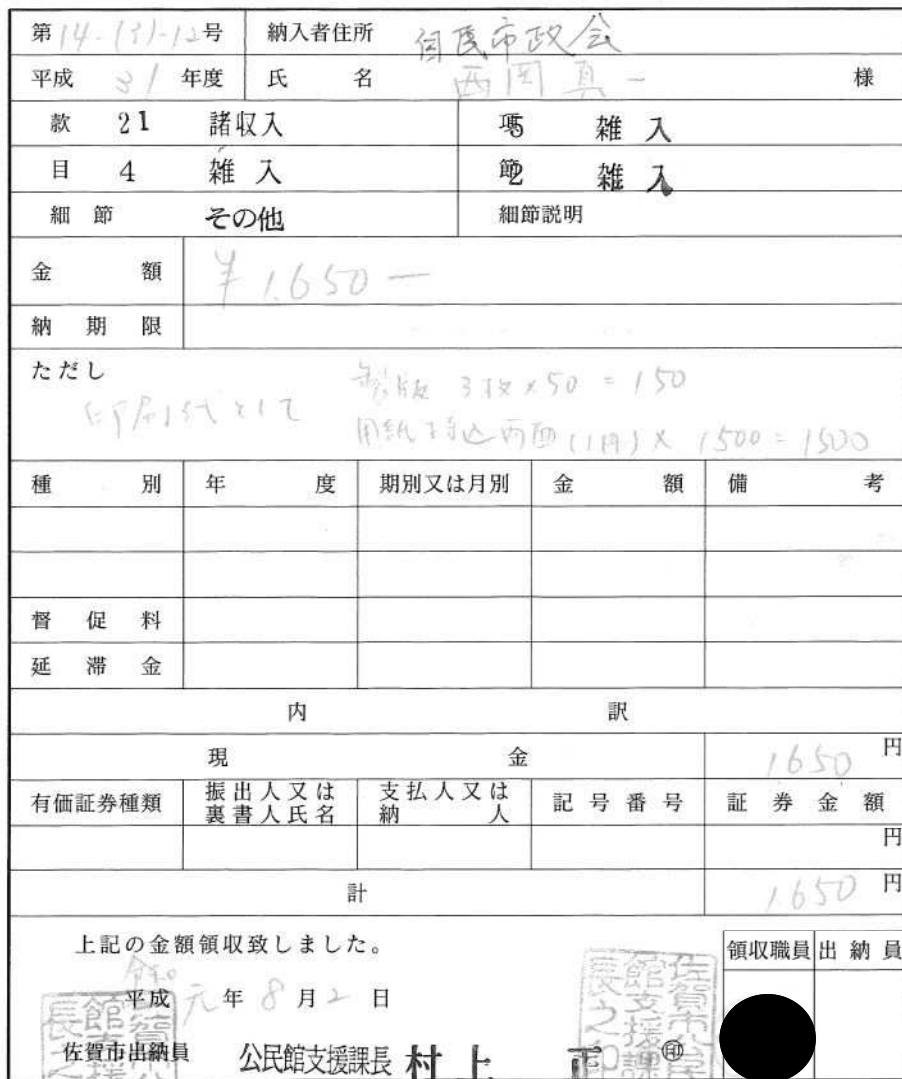 第14-(3)-12号 納入者住所 自民市政会
平成 31 年度 氏 名 西岡真一 様
款 21 諸収入 項5 雑入
目 4 雑入 節2 雑入
細節 その他 細節説明
金 額 ¥1.650ー
納期限
ただし 製版 3枚×50=150
印刷代として
用紙持込両面(1円)×1500=1500
種 別 年 度 期別又は月別 金 額 備 考
督促料
延滞金
内 訳
現 金 1650 円
有価証券種類 振出人又は裏書人氏名 支払人又は納人 記号番号 証券金額
円
計 1.650 円
上記の金額領収致しました。 領収職員 出納員
平成 元年 8月2日
佐賀市出納員 公民館支援課長 村上 正 ㊞
佐賀市公民館支援課長之印